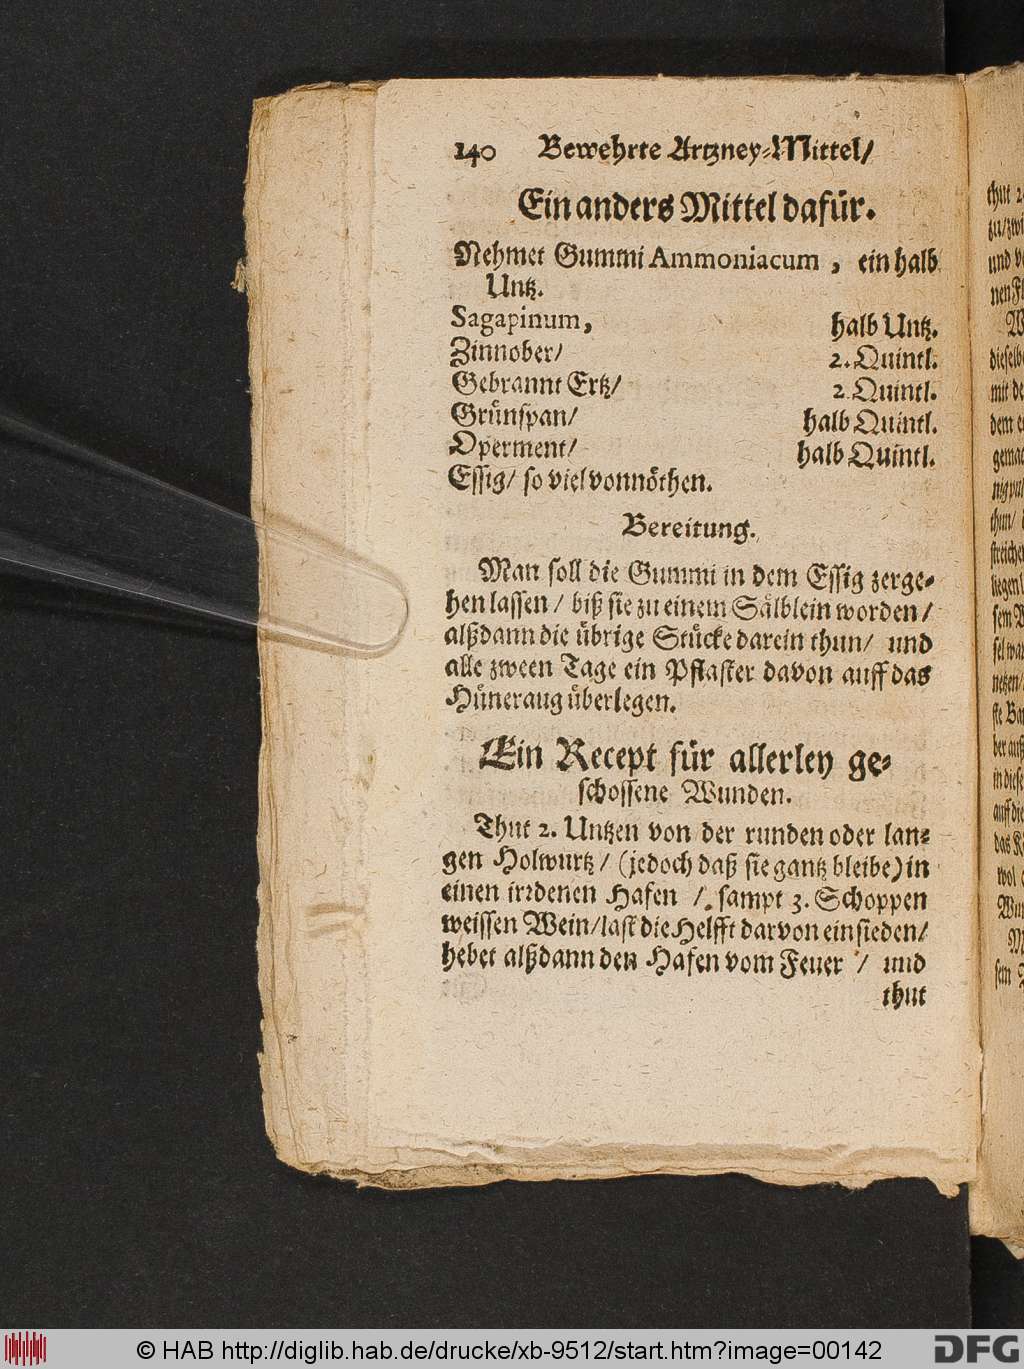 140 Bewehrte Artzney-Mittel/
Ein anders Mittel dafür.
Nehmet Gummi Ammoniacum, ein halb
Untz.
Sagapinum, halb Untz.
Zinnober/ 2. Quintl.
Gebrannt Ertz/ 2 Quintl.
Grünspan/ halb Quintl.
Operment/ halb Quintl.
Essig/ so viel vonnöthen.
Bereitung.
Man soll die Gummi in dem Essig zerge-
hen lassen/ biß sie zu einem Sälblein worden/
alßdann die übrige Stücke darein thun/ und
alle zween Tage ein Pflaster davon auff das
Hüneraug überlegen.
Ein Recept für allerley ge-
schossene Wunden.
Thut 2. Untzen von der runden oder lan-
gen Holwurtz/ (jedoch daß sie gantz bleibe) in
einen irrdenen Hafen/. sampt 3. Schoppen
weissen Wein/ last die Helfft darvon einsieden/
hebet alßdann den Hafen vom Feuer/ und
thut
thut
und
dem
© HAB http://diglib.hab.de/drucke/xb-9512/start.htm?image=00142
DFG